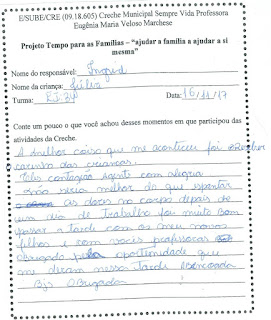 E/SUBE/CRE (09.18.605) Creche Municipal Sempre Vida Professora
Eugênia Maria Veloso Marchese
Projeto Tempo para as Famílias – "ajudar a família a ajudar a si
mesma"
Nome do responsável: Ingrid
Nome da criança: Júlia
Turma: Data: 16/11/17
Conte um pouco o que você achou desses momentos em que participou das
atividades da Creche.
A melhor coisa que me aconteceu foi Receber
carinho das crianças.
Eles contagião agente com alegria
não seria melhor do que espantar
as dores no corpo depois de
um dia de Trabalho foi muito Bom
passar a tarde com os meus novos
filhos e com vocês professoras
obrigado pela oportunidade que
me deram nessa Tarde abençoada
Bjs Obrigada